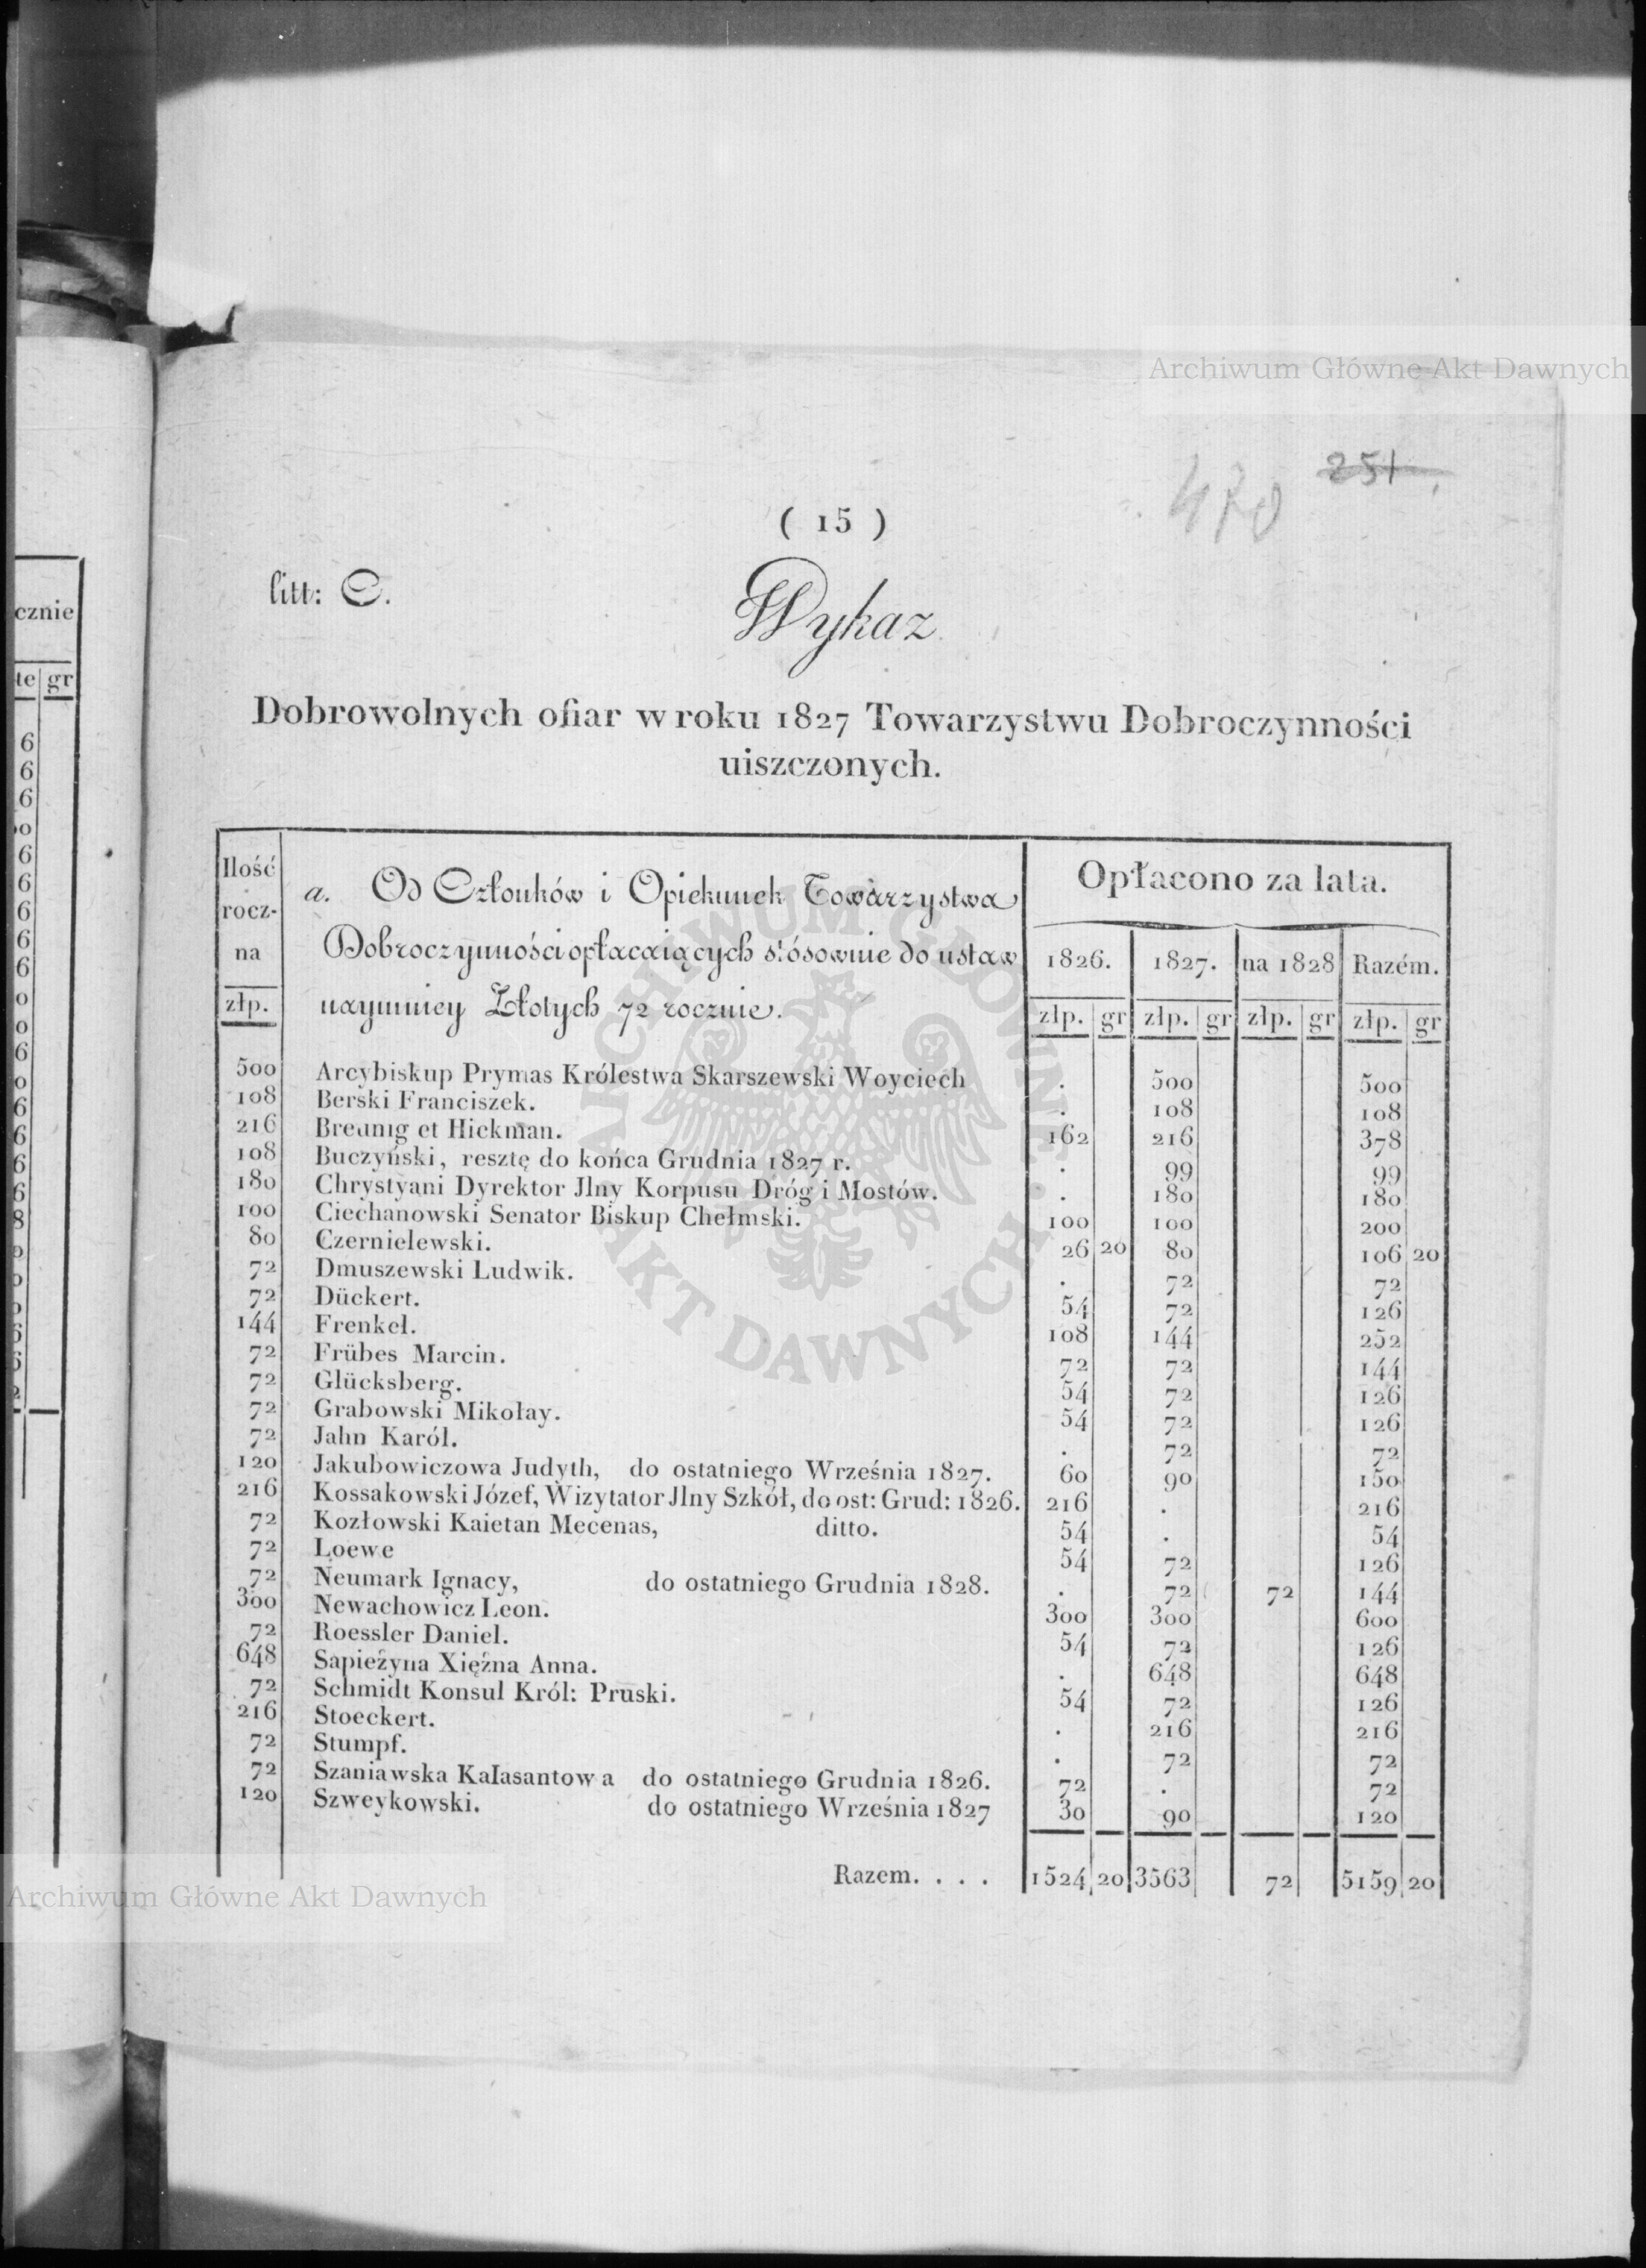 Archiwum Główne Akt Dawnych
470 251
( 15 )
litt: C.
Wykaz
Dobrowolnych ofiar w roku 1827 Towarzystwu Dobroczynności
uiszczonych.
Ilość rocz- na złp.
a. Od Członków i Opiekunek Towarzystwa
Dobroczynności opłacaiących stósownie do ustaw
naymniey Złotych 72 rocznie.
Opłacono za lata.
1826. 1827. na 1828 Razém.
złp. gr złp. gr złp. gr złp. gr
500 Arcybiskup Prymas Królestwa Skarszewski Woyciech . 500 500
108 Berski Franciszek. . 108 108
216 Breunig et Hickman. 162 216 378
108 Buczyński, resztę do końca Grudnia 1827 r. . 99 99
180 Chrystyani Dyrektor Jlny Korpusu Dróg i Mostów. . 180 180
100 Ciechanowski Senator Biskup Chełmski. 100 100 200
80 Czernielewski. 26 20 80 106 20
72 Dmuszewski Ludwik. . 72 72
72 Dückert. 54 72 126
144 Frenkel. 108 144 252
72 Frübes Marcin. 72 72 144
72 Glücksberg. 54 72 126
72 Grabowski Mikołay. 54 72 126
72 Jahn Karól. . 72 72
120 Jakubowiczowa Judyth, do ostatniego Września 1827. 60 90 150
216 Kossakowski Józef, Wizytator Jlny Szkół, do ost: Grud: 1826. 216 . 216
72 Kozłowski Kaietan Mecenas, ditto. 54 . 54
72 Loewe 54 72 126
72 Neumark Ignacy, do ostatniego Grudnia 1828. . 72 72 144
300 Newachowicz Leon. 300 300 600
72 Roessler Daniel. 54 72 126
648 Sapieżyna Xiężna Anna. . 648 648
72 Schmidt Konsul Król: Pruski. 54 72 126
216 Stoeckert. . 216 216
72 Stumpf. . 72 72
72 Szaniawska Kalasantowa do ostatniego Grudnia 1826. 72 . 72
120 Szweykowski. do ostatniego Września 1827 30 90 120
Razem. . . . 1524 20 3563 72 5159 20
Archiwum Główne Akt Dawnych
ARCHIWUM GŁÓWNE • AKT DAWNYCH •
cznie
gr